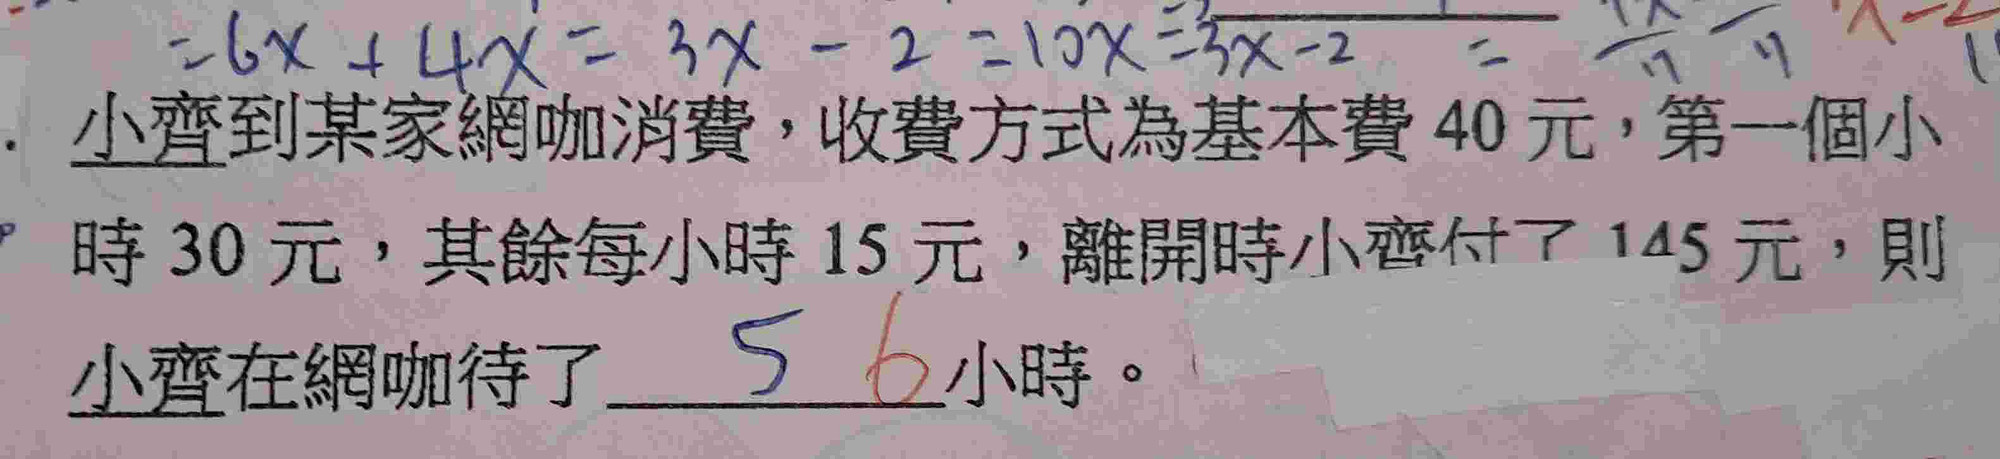 =6x+4x=3x-2=10x=3x-2 =
小齊到某家網咖消費，收費方式為基本費 40 元，第一個小
時 30 元，其餘每小時 15 元，離開時小齊付了 145 元，則
小齊在網咖待了 5 6 小時。